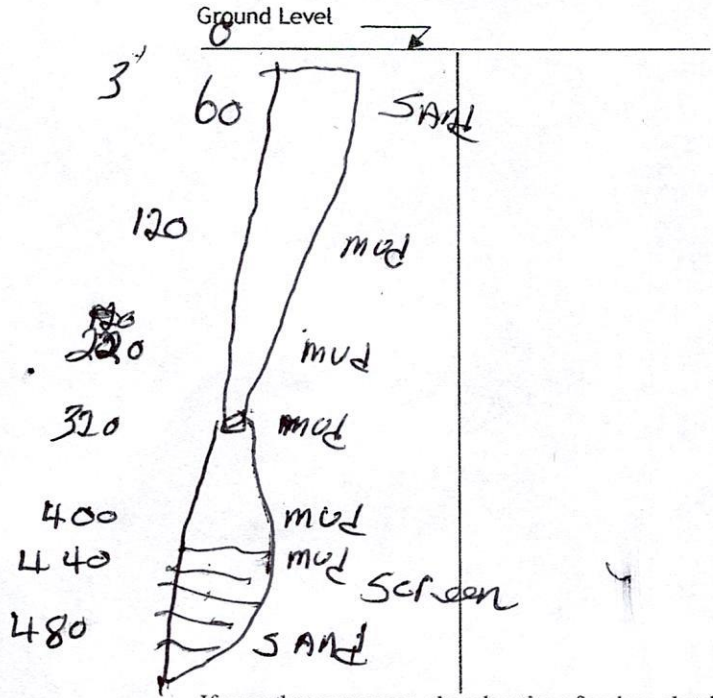 Ground Level
0
3"
60 SANd
120 mud
220 mud
320 mud
400 mud
440 mud
Screen
480 SANd